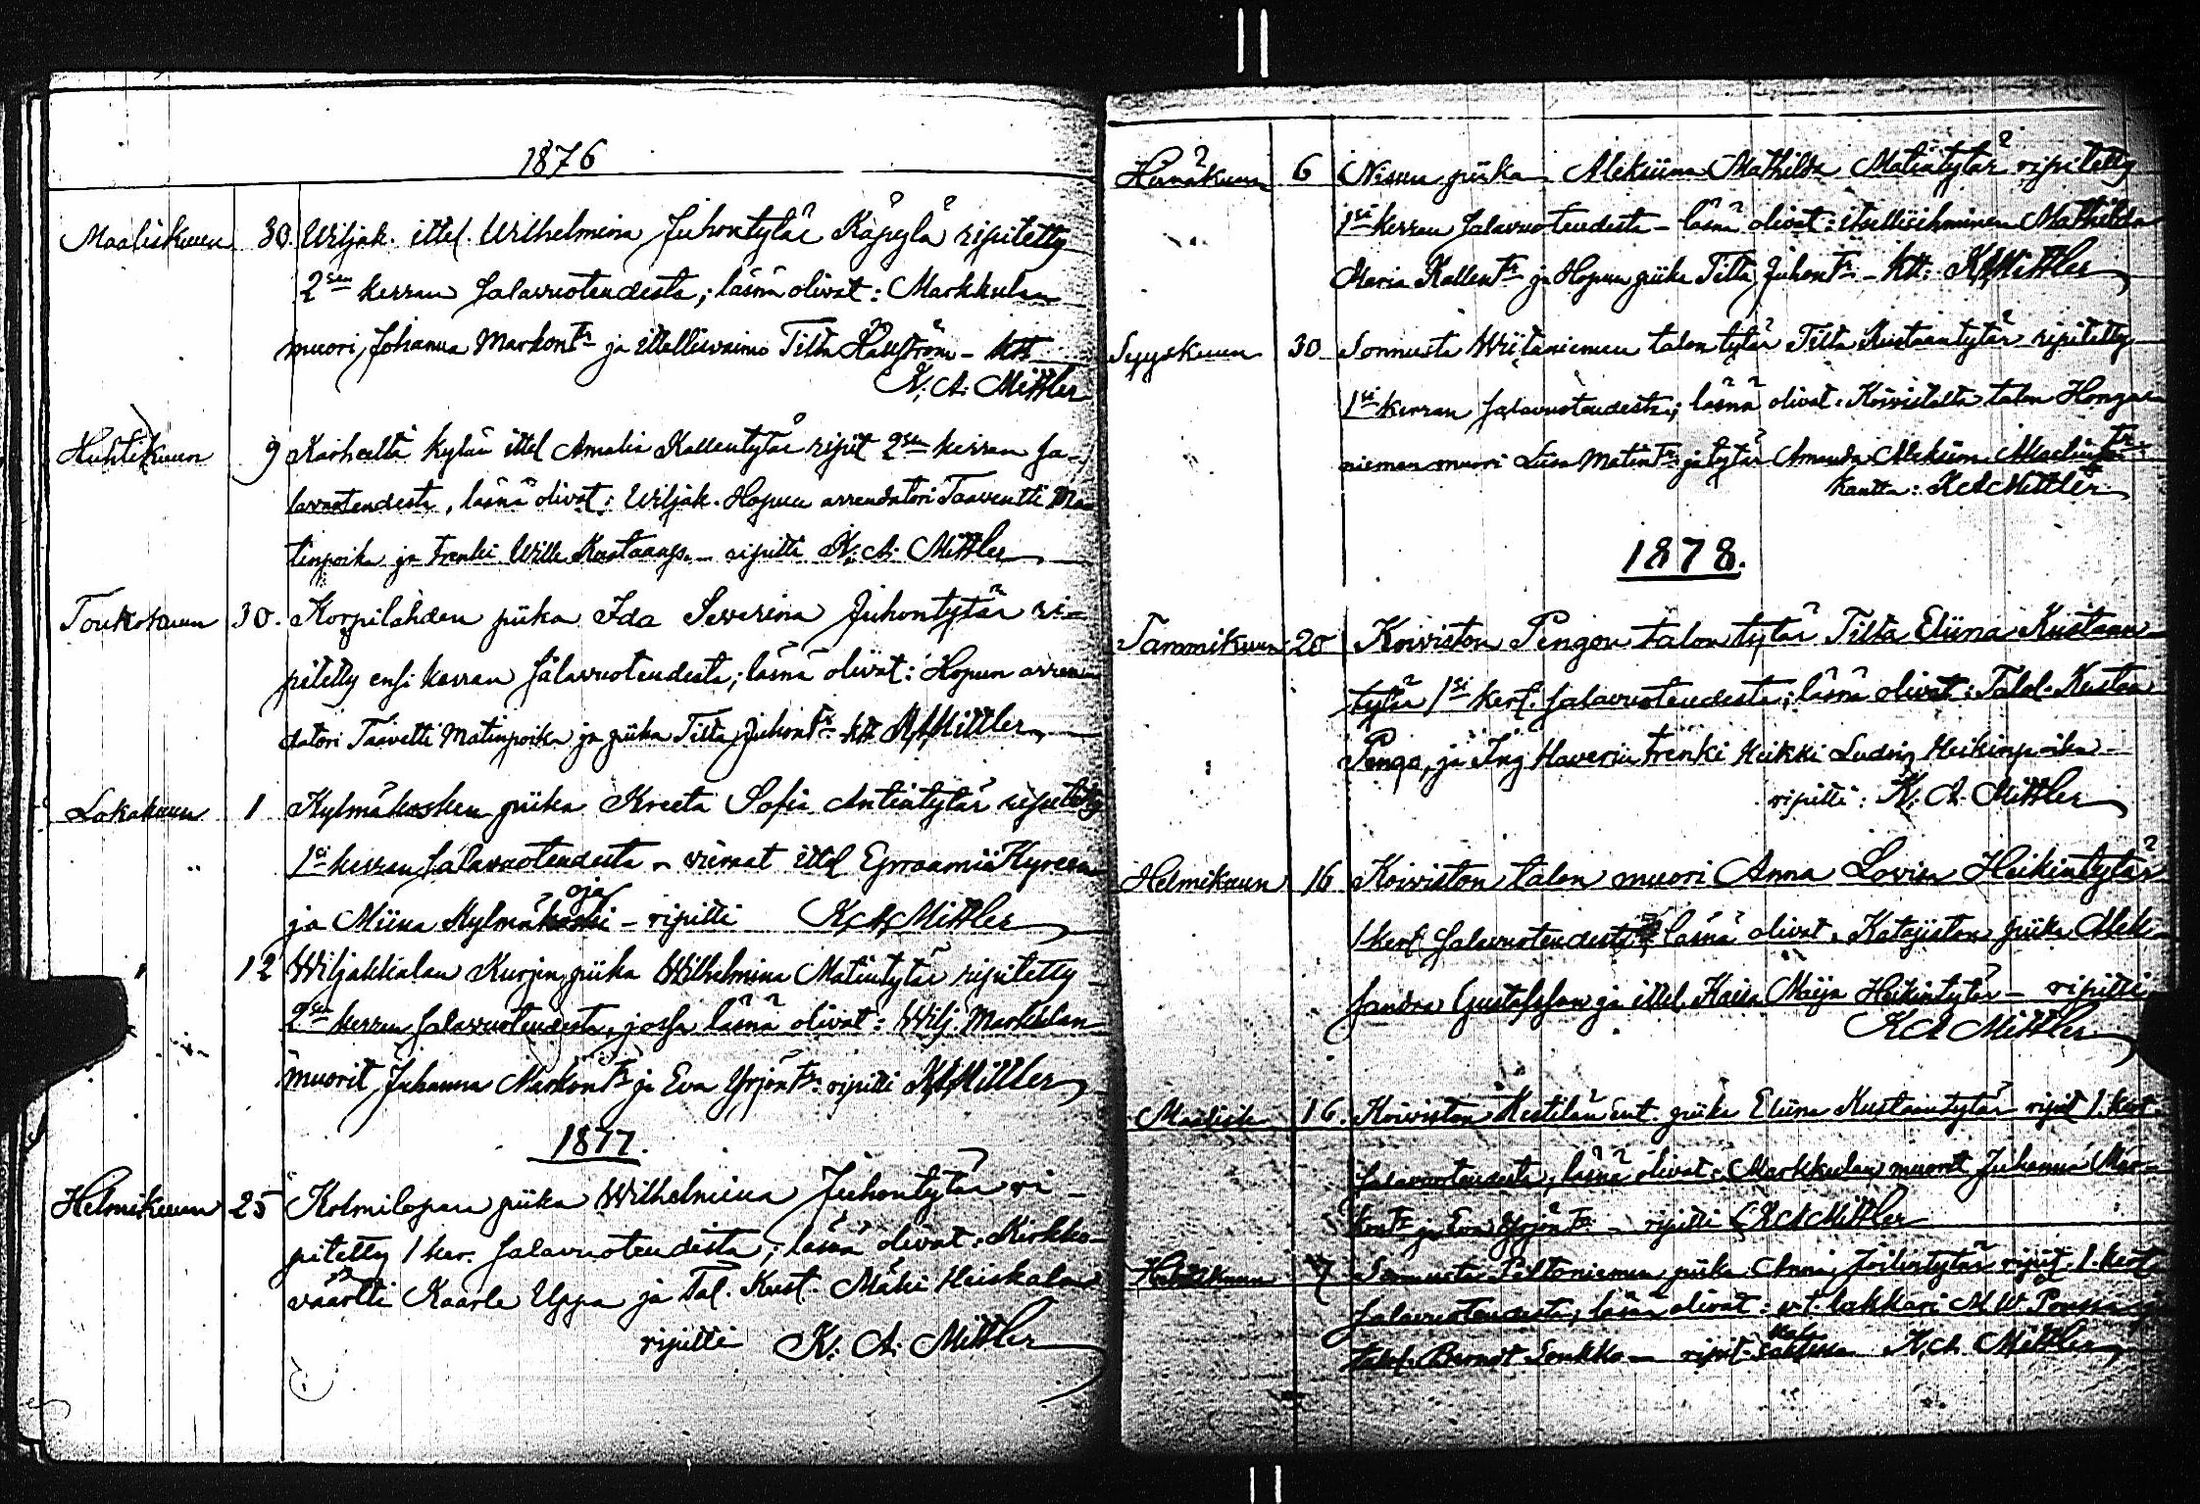 1876
Maaliskuun 30. Wiljak. ittel. Wilhelmina Juhontytär Käpylä ripitetty
2sen kerran salavuoteudesta; läsnä olivat: Markkulan
muori, Johanna Markontr ja itellisvaimo Tilta Hällström - ktt
K. A. Mittler
Huhtikuun 9 Karhealta kylän ittel Amalia Kallentytär ripit 2sen kerran sa-
lavuoteudesta, läsnä olivat: Wiljak. Hopun arrendatori Taavetti Ma-
tinpoika ja trenki Wille Kustaanp. - ripitti K. A. Mittler
Toukokuun 30. Korpilahden piika Ida Severina Juhontytär ri-
pitetty ensi kerran salavuoteudesta; läsnä olivat: Hopun arren-
datori Taavetti Matinpoika ja piika Tilta Juhontr ktt KAMittler
Lokakuun 1 Kylmäkosken piika Kreeta Sofia Antintytär ripitetty
1si kerran salavuoteudesta - vieraat ittel
oja
ja Miina Kylmäkoski - ripitti KAMittler
" 12 Wiljakkalan Kurjen piika Wilhelmina Matintytär ripitetty
2sen kerran salavuoteudesta, jossa läsnä olivat: Wilj. Markkulan
muorit Juhanna Markontr ja Eva Yrjöntr: ripitti KAMittler
1877.
Helmikuun 25 Kolmilopan piika Wilhelmina Juhontytär ri-
pitetty 1 ker. salavuoteudesta; läsnä olivat: Kirkko-
väärtti Kaarle Uppa ja Tal. Kust. Mäki Heiskalan
ripitti K. A. Mittler
Heinäkuun 6 Nisun piika Aleksiina Mathilda Matintytär ripitetty
1si kerran salavuoteudesta - läsnä olivat: itsellisihminen Mathilda
Maria Kallentr ja Hopun piika Tilta Juhontr - ktt: KAMittler
Syyskuun 30 Sonnusta Wiitaniemen talon tytär Tilta Kustaantytär ripitetty
1si kerran salavuoteudesta; läsnä olivat: Koivistolta talon Hongan-
niemen muori Liisa Matintr ja tytär Amanda tr
kautta: KAMittler
1878.
Tammikuun 20 Koiviston Pengon talon tytär Tilta Eliina Kustaan-
tytär 1si kert. salavuoteudesta; läsnä olivat: Talol. Kustaa
Pengo, ja Haveriu trenki Heikki Ludvig Heikinpoika
ripitti: K. A. Mittler
Helmikuun 16 Koiviston talon muori Anna Lovisa Heikintytär
1 kert salavuoteudesta läsnä olivat. Katajiston piika Alek-
sandra Gustafsson ja ittel. Kaisa Maija Heikintytär - ripitti
K A Mittler
Maalisk 16. Koiviston Kestilän ent. piika Eliina Kustaantytär ripit 1. kert.
salavuoteudesta; läsnä olivat: Markkulan muorit Juhanna Mar-
kontr ja Eva Yrjöntr - ripitti KAMittler
7 Sonnusta Peltoniemen piika Anna ripit. 1. kert
salavuoteudesta; läsnä olivat: v.t. lukkari M W
talol. Berndt Sonkko - ripit. K. A. Mittler